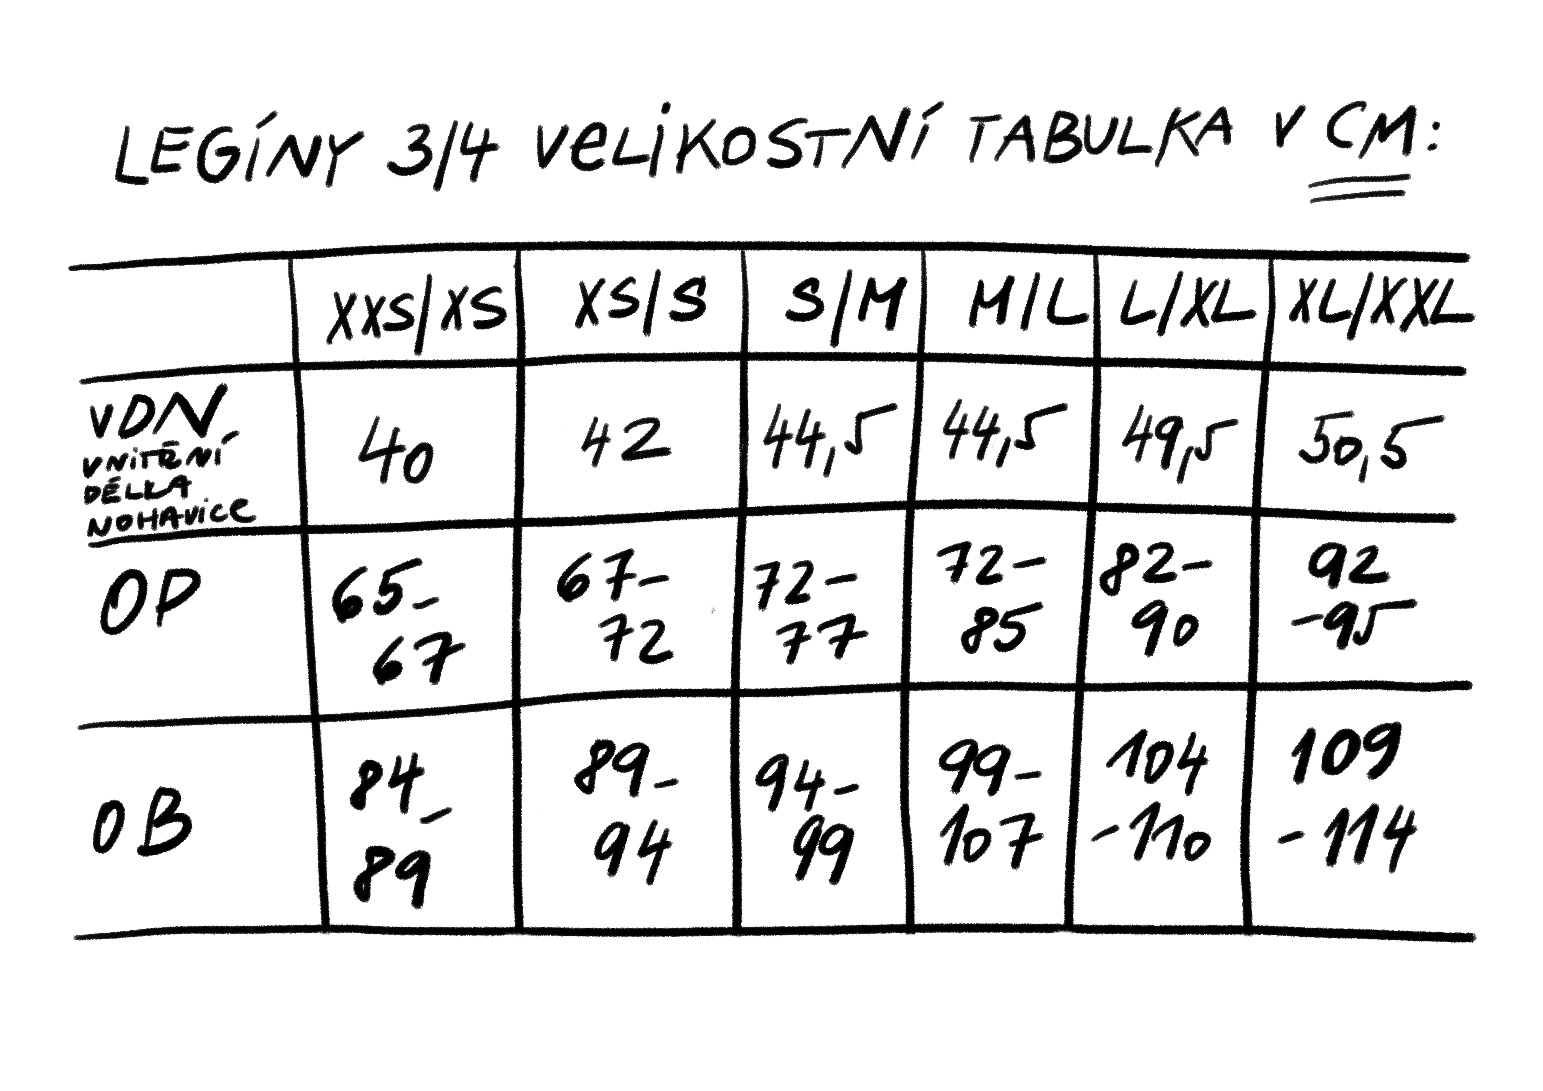 LEGÍNY 3/4 VELIKOSTNÍ TABULKA V CM:
XXS/XS XS/S S/M M/L L/XL XL/XXL
VDN 40 42 44,5 44,5 49,5 50,5
VNITŘNÍ
DÉLKA
NOHAVICE
OP 65- 67- 72- 72- 82- 92
67 72 77 85 90 -95
OB 84- 89- 94- 99- 104 109
89 94 99 107 -110 -114